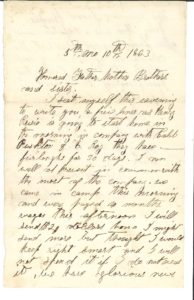 5th Mo 10th 1863
Honard Father Mother Brothers
and sisters
I seat myself this evening
to write you a few lines as Henry
is going to start home in
the morning in company with
they have
furloughs for 30 days I am
well at present in common with
the most of the company we
came in camp this morning
and were payed 2 months
wages this afternoon I will
send 25 dollars home I might
send more but thought I would
keep eight myself and I will
not spend it if I do not need
it we have glorious news